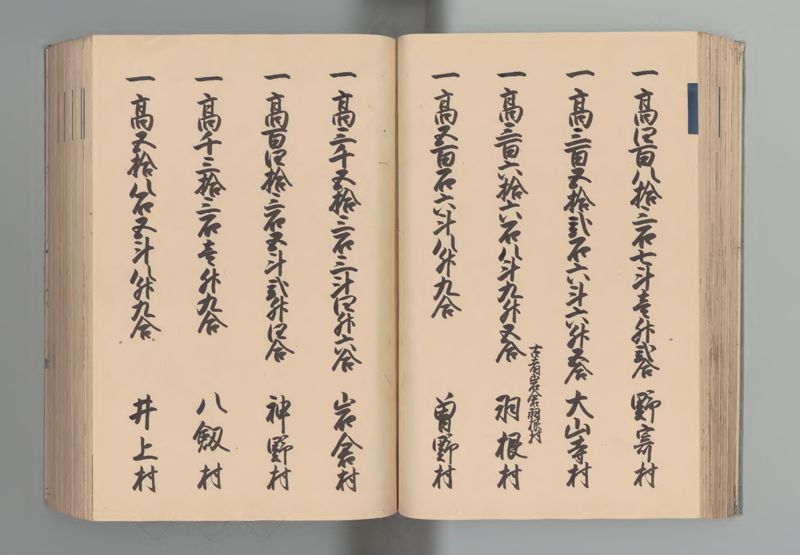 一 高四百八拾三石七斗壱升弐合 野寄村
一 高三百五拾弐石六斗六升五合 大山寺村
古者岩倉羽根村
一 高三百六拾六石八斗九升五合 羽根村
一 高五百石六斗八升九合 曽野村
一 高三千五拾三石三斗四升六合 岩倉村
一 高百四拾三石五斗弐升四合 神野村
一 高千三拾三石壱升九合 八剱村
一 高五拾八石五斗八升九合 井上村